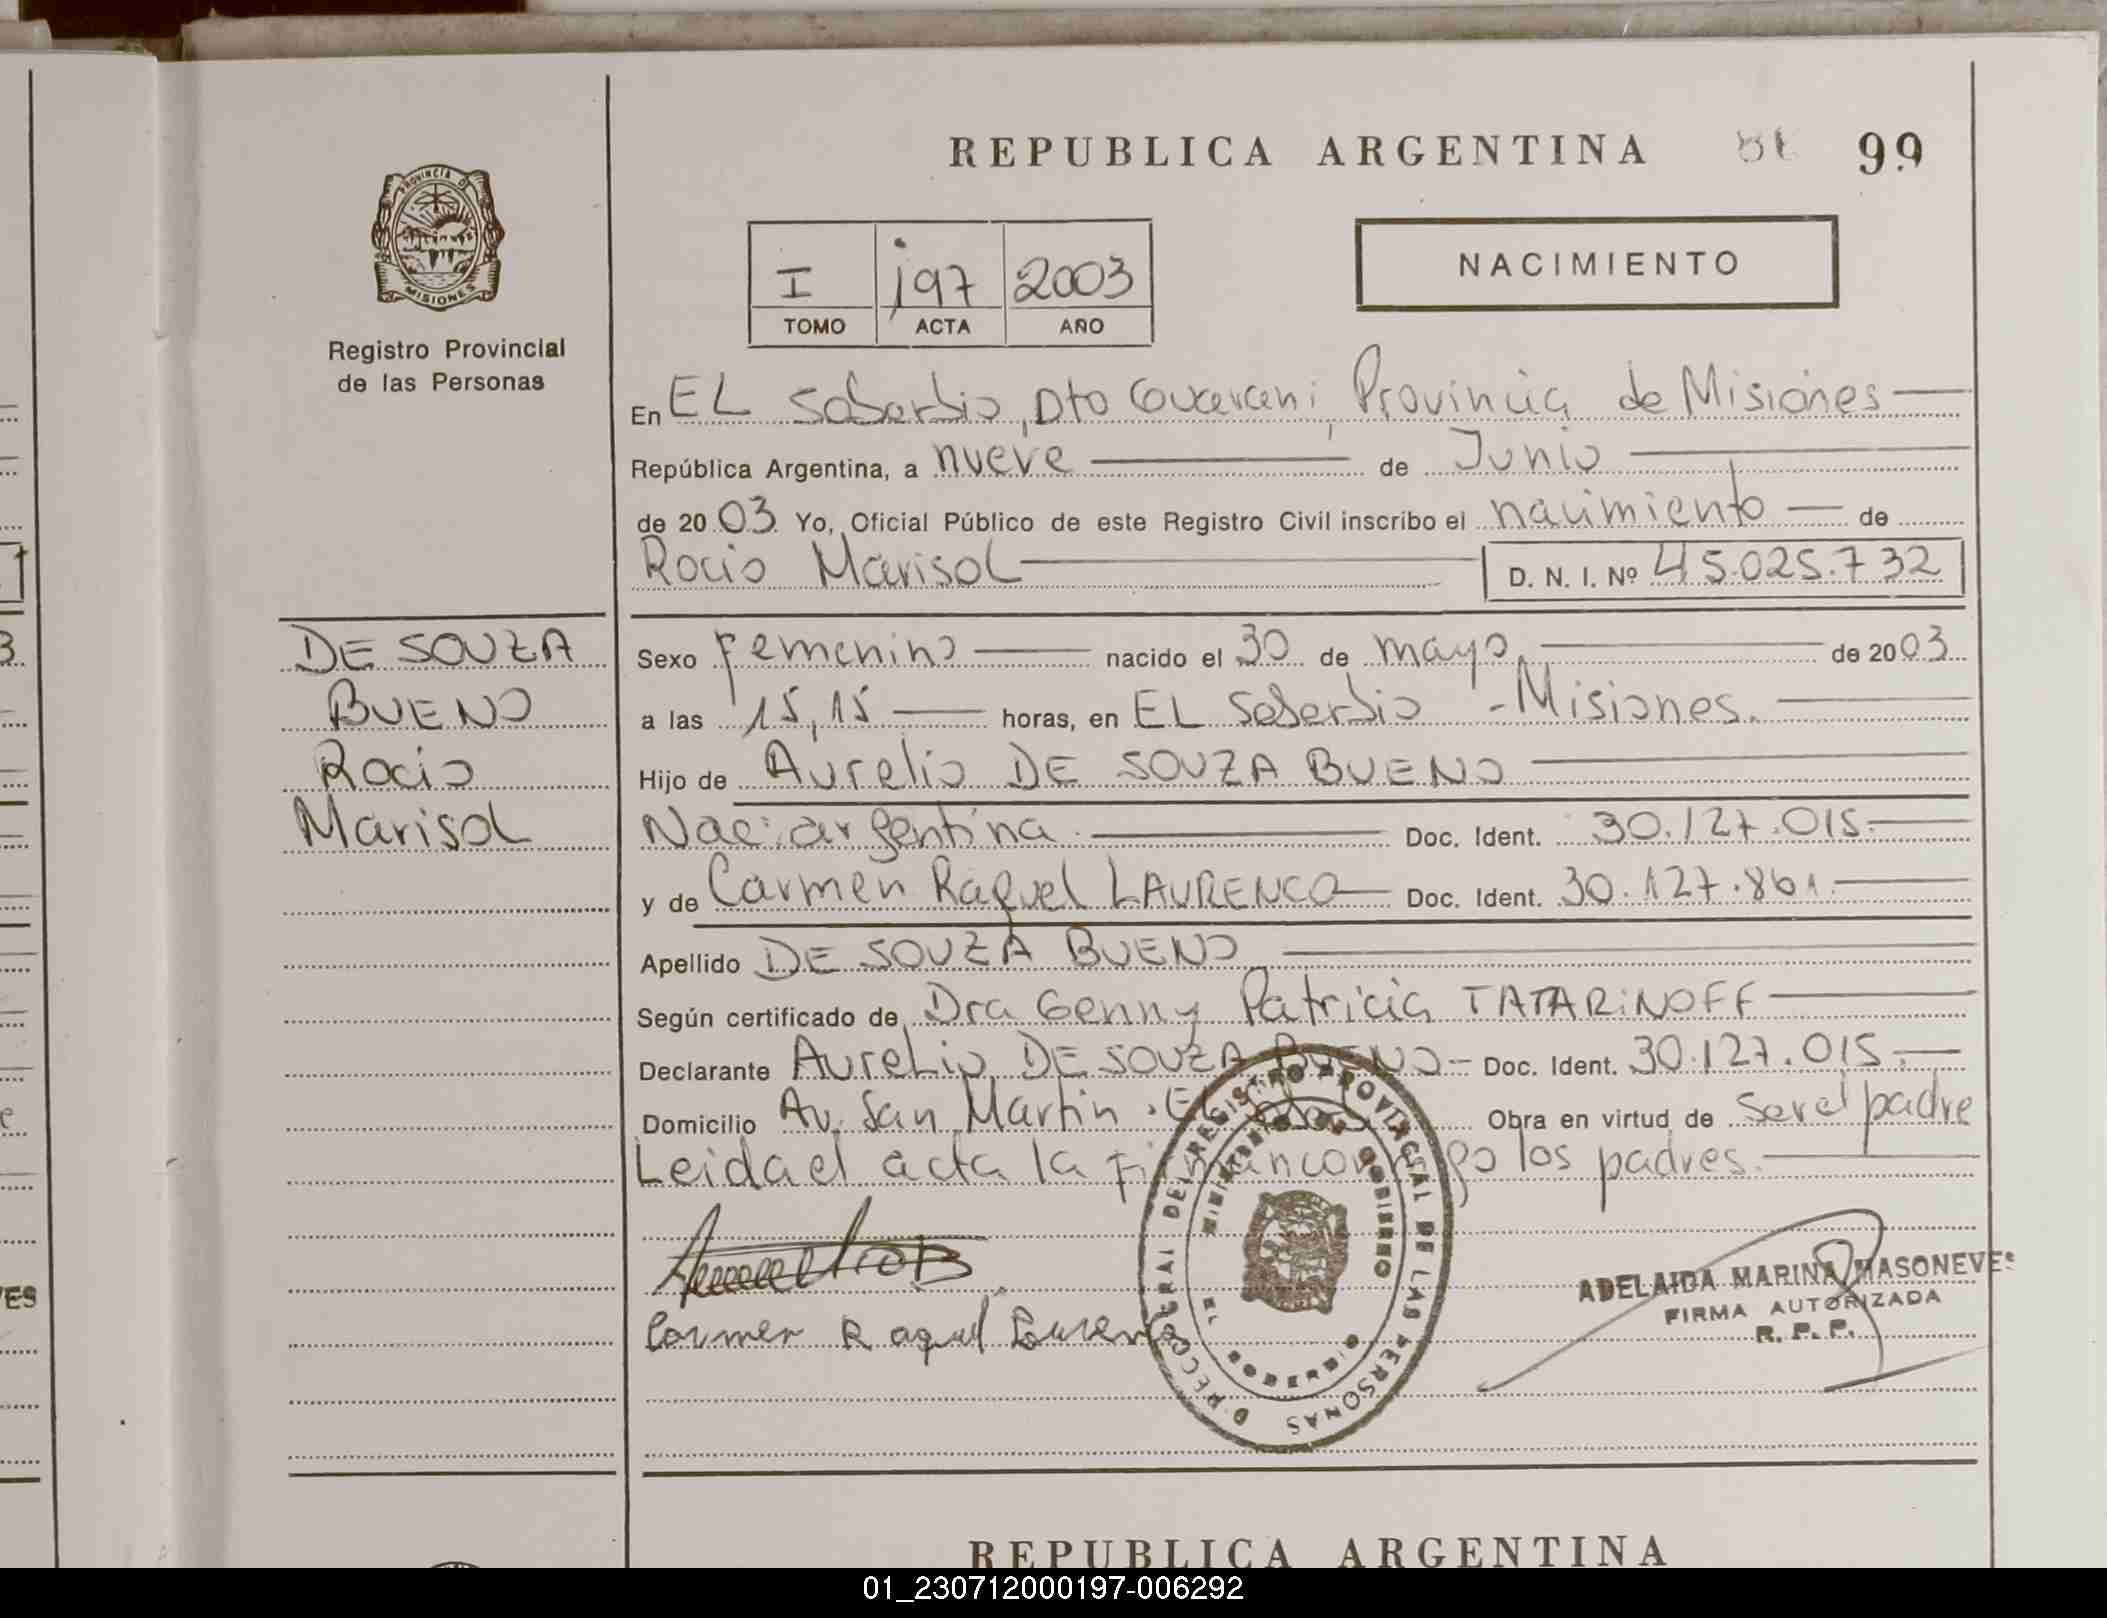 REPUBLICA ARGENTINA 99
PROVINCIA DE
MISIONES
Registro Provincial
de las Personas
I 197 2003
TOMO ACTA AÑO
NACIMIENTO
En EL Soberbio, Dto Guarani, Provincia de Misiones
República Argentina, a nueve de Junio
de 2003 Yo, Oficial Público de este Registro Civil inscribo el nacimiento de
Rocio Marisol D. N. I. Nº 45.025.732
DE SOUZA
BUENO
Rocio
Marisol
Sexo Femenino nacido el 30 de mayo de 2003
a las 15,15 horas, en EL Soberbio - Misiones.
Hijo de Aurelio DE SOUZA BUENO
Nac: argentina. Doc. Ident. 30.127.015.
y de Carmen Raquel LAURENCO Doc. Ident. 30.127.861.
Apellido DE SOUZA BUENO
Según certificado de Dra Genny Patricia TATARINOFF
Declarante Aurelio DE SOUZA BUENO - Doc. Ident. 30.127.015.
Domicilio Av. San Martin. EL Obra en virtud de ser el padre
Leida el acta la Firman conmigo los padres.
Carmen Raquel
DIRECCION GENERAL DEL REGISTRO PROVINCIAL DE LAS PERSONAS
MINISTERIO DE GOBIERNO
EL SOBERBIO
ADELAIDA MARINA MASONEVES
FIRMA AUTORIZADA
R. P. P.
VES
REPUBLICA ARGENTINA
01_230712000197-006292